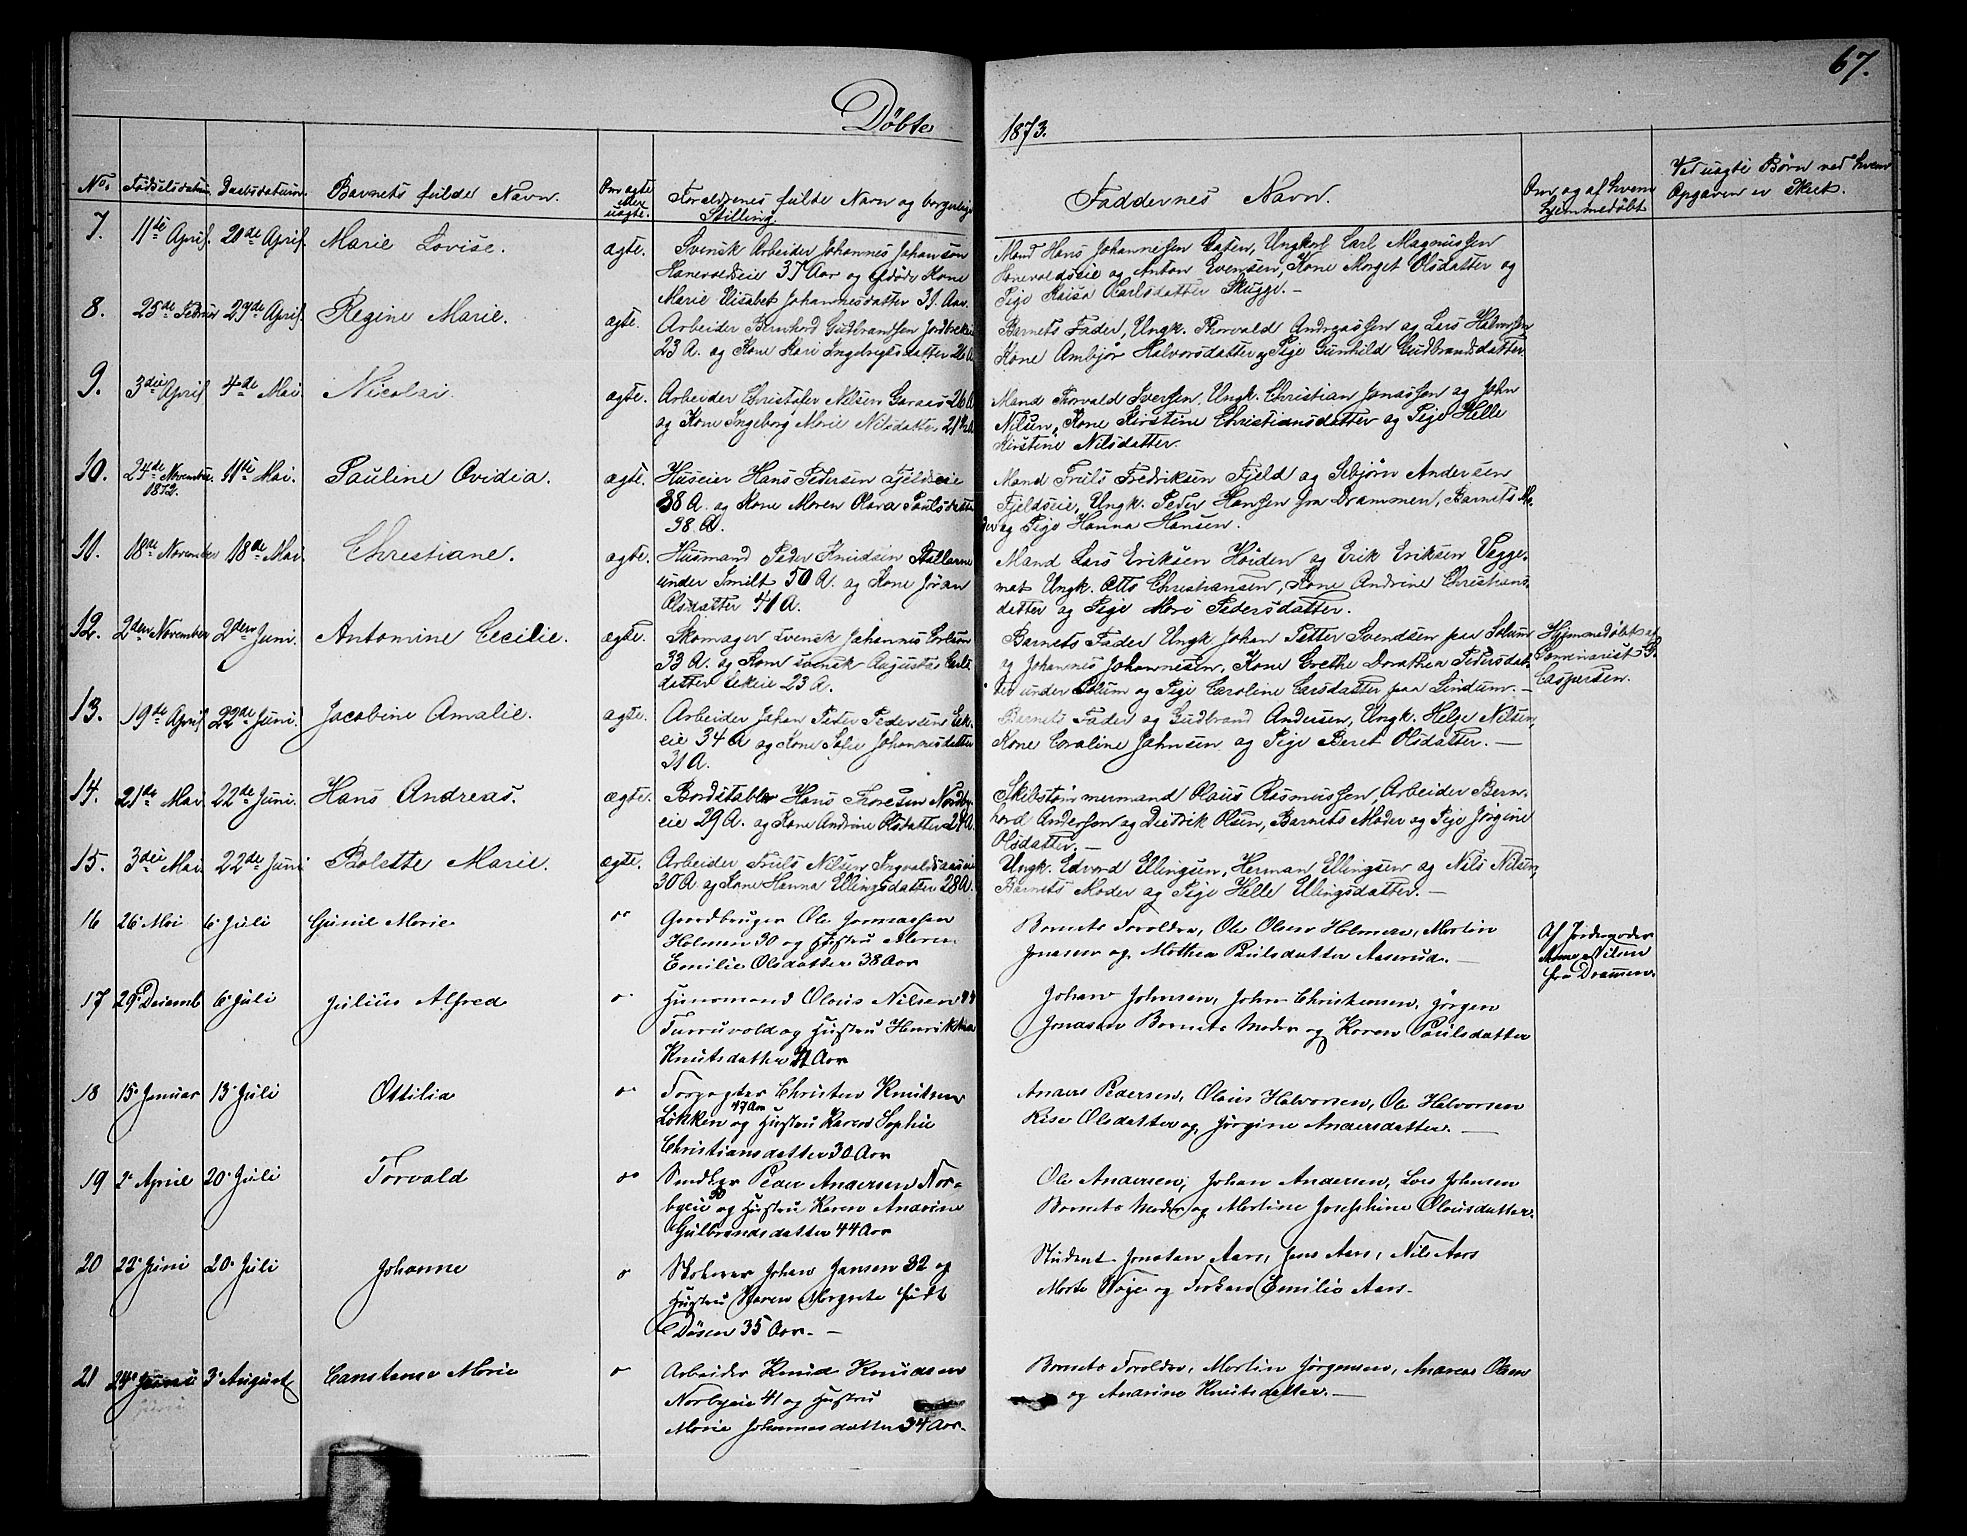 67.
Døbte 1873.
No. Fødselsdatum Daabsdatum. Barnets fulde Navn. Om ægte eller uægte. Forældrenes fulde Navn og borgerlige Stilling. Faddernes Navn. Om og af hvem hjemmedøbt Ved uægte Børn ved hvem Opgaven er skeet.
7. 11te April. 20de April. Marie Lovise. ægte. Svensk Arbeider Johannes Johanson
Hanevoldseie 37 Aar og Kone
Marie Elisabet Johannesdatter 31 Aar.
Mand Hans Johannessen Ungkarl Carl Magnussen
Honevoldseie og Anton Evensen, Kone Marget Olsdatter og
Pige Kaisa Carlsdatter Skugge.
8. 25de Februar 27de April. Regine Marie. ægte. Arbeider Bernhard Gudbrandsen
23 A. og Kone Kari Ingebrigtsdatter 26 A.
Barnets Fader, Ungk. Thorvald Andreassen og Lars Halvorsen,
Kone Ambjør Halvorsdatter og Pige Gunhild Gudbrandsdatter
9. 3die April 4de Mai. Nicolai. ægte. Arbeider Christofer Nilsen Garaas 26 A.
og Kone Ingeborg Marie Nilsdatter 21
Mand Thorvald Iversen, Ungk. Christian Jonassen og John
Nilsen, Kone Kirstine Christiansdatter og Pige Helle
Kirstine Nilsdatter.
10. 24de November 1872. 11te Mai. Pauline Ovidia. ægte. Huseier Hans Pedersen Fjeldseie
38 A. og Kone Maren Olava Paulsdatter
38 A.
Mand Truls Fredriksen Fjeld og Sebjørn Andersen
Fjeldseie, Ungk. Peder Hansen fra Drammen, Barnets Mo-
der og Pige Hanna Hansen.
11. 18de November 18de Mai. Christiane. ægte. Husmand Peder Knudsen Stallarne
under Smilt 50 A. og Kone Jøran
Olsdatter 41 A.
Mand Lars Eriksen Høiden og Erik Eriksen Vegge-
Ungk. Otto Christiansen, Kone Andrine Christians-
datter og Pige Mari Pedersdatter.
12. 2den November 2den Juni. Antomine Cecilie. ægte. Skomager svensk Johannes
33 A. og Kone svensk Augusta Carls-
datter 23 A.
Barnets Fader Ungk. Johan Petter Svendsen paa Solum
og Johannes Johannesen, Kone Grethe Dorathea Pedersdat-
ter under Solum og Pige Caroline Larsdatter paa Lindum.
Hjemmedøbt af
Seminarist
Caspersen.
13. 19de April 22de Juni. Jacobine Amalie. ægte. Arbeider Johan Peder Pedersen Eek-
eie 34 A. og Kone Sofie Johannesdatter
31 A.
Barnets Fader og Gudbrand Andersen, Ungk. Helge Nilsen,
Kone Coraline Jahnsen og Pige Beret Olsdatter.
14. 21de Mai. 22de Juni. Hans Andreas. ægte. Bordstabler Hans Thoresen Nordby-
eie 29 A. og Kone Andrine Olsdatter 24 A.
Skibstømmermand Olaus Rasmussen, Arbeider Bern-
hard Andersen og Diedrik Olsen, Barnets Moder og Pige Jørgine
Olsdatter.
15. 3die Mai. 22de Juni Bolette Marie. ægte. Arbeider Truls Nilsen Ingvaldsaaseie
30 A. og Kone Hanna Ellingsdatter 28 A.
Ungk. Edvard Ellingsen, Herman Ellingsen og Nils Nilsen,
Barnets Moder og Pige Helle Ellingsdatter.
16 26 Mai 6 Juli Gunil Marie Gaardbruger Ole Jonassen
Holmen 30 og Hustru Maren
Emilie Olsdatter 38 Aar
Barnets Forældre, Ole Olsen Holmen, Martin
Jonasen og Mathea Paulsdatter Aaserud.
Af Jordemoder
Anne Nilsen
fra Drammen.
17 29 Decemb 6 Juli Julius Alfred Husmand Olaus Nilsen 44
Furruvold og Hustru Henrikkine
Knutsdatter Aar
Johan Johnsen, John Christensen, Jørgen
Jonasen Barnets Moder og Karen Paulsdatter
18 15 Januar 13 Juli Ottilia Forpagter Christen Knutsen
Løkken 47 Aar og Hustru Karen Sophie
Christiansdatter 30 Aar
Anders Pedersen, Olaus Halvorsen, Ole Halvorsen
Olsdatter og Jørgine Andersdatter.
19 2 April 20 Juli Torvald Peder Andersen Nor-
byeie 50 og Hustru Karen Anarine
Gulbrandsdatter 44 Aar
Ole Andersen, Johan Andersen, Lars Johnsen
Barnets Moder og Martine Josephine Olausdatter.
20 22 Juni 20 Juli Johanne Johan Jansen 32 og
Hustru Karen Margrete født
Døsen 35 Aar.
Student Jonatan Aars, Jens Aars, Nils Aars
Marte og Frøken Emilie Aars.
21 24 Juni 3 August Constanse Marie Arbeider Knud Knudsen
Norbyeie 41 og Hustru
Marie Johannesdatter 34 Aar.
Barnets Forældre, Martin Jørgensen, Andreas Olsen
og Anarine Knutsdatter.